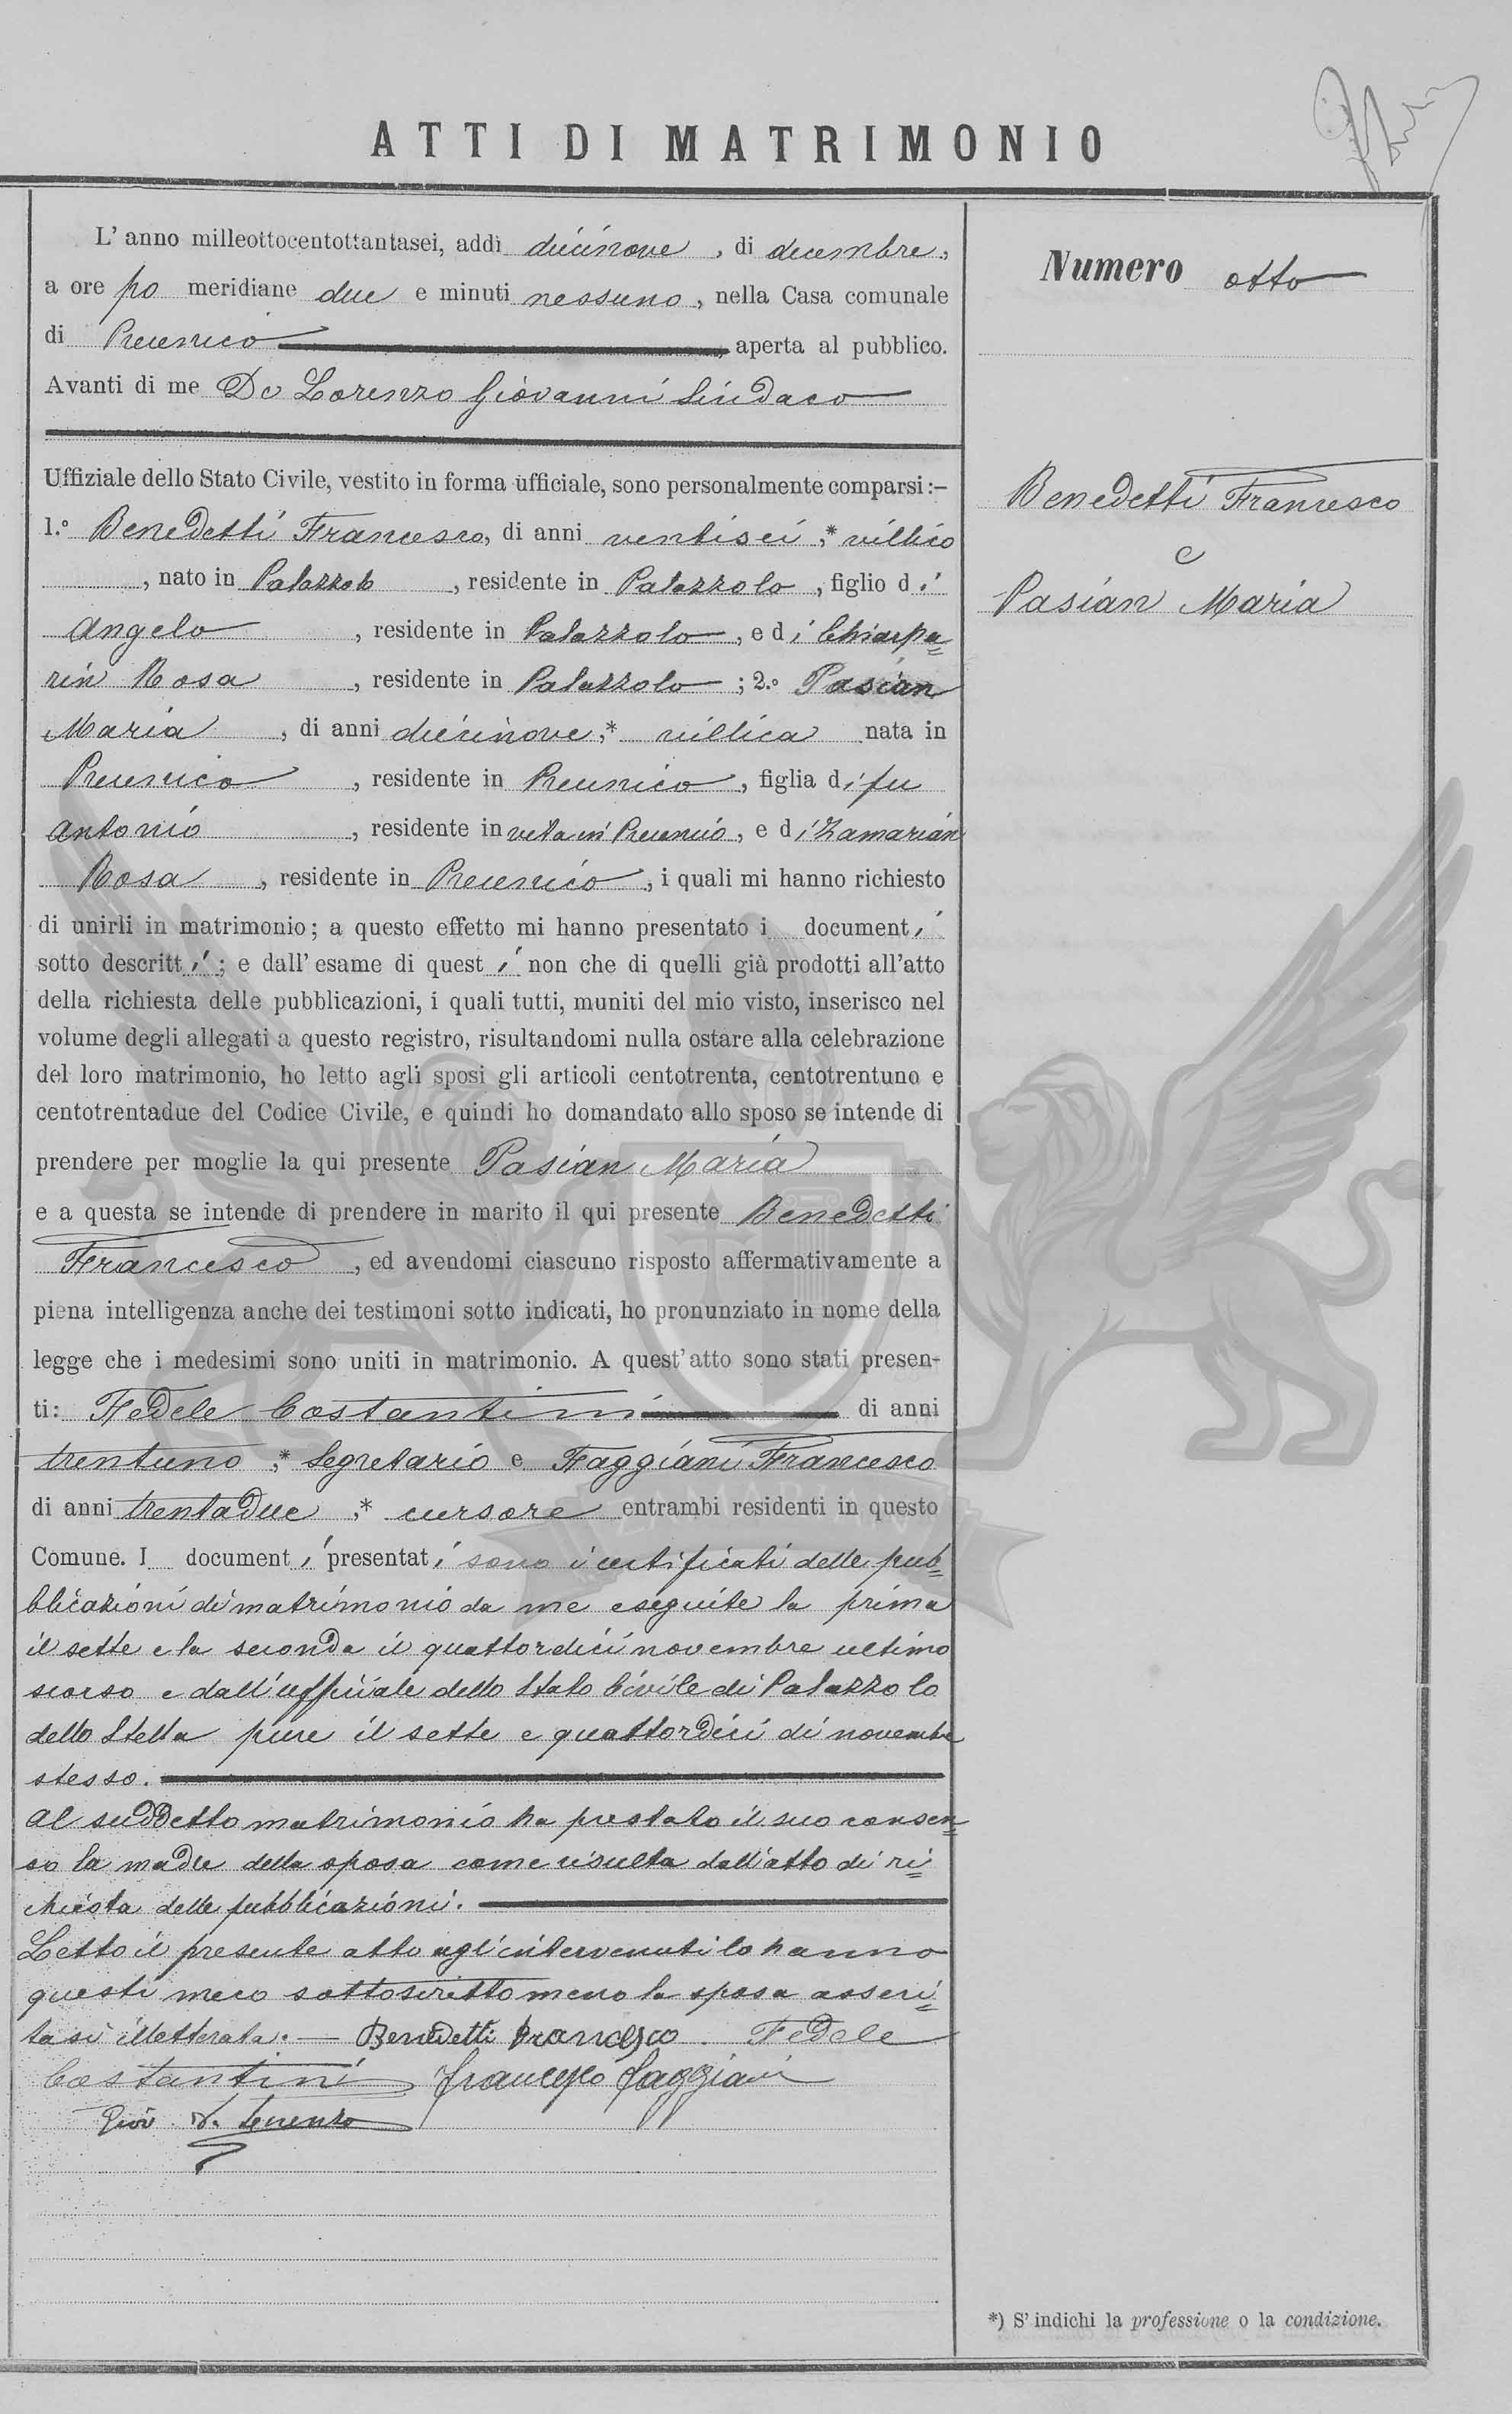 ATTI DI MATRIMONIO
L'anno milleottocentottantasei, addì diecinove, di decembre,
a ore po meridiane due e minuti nessuno, nella Casa comunale
di Precenico, aperta al pubblico.
Avanti di me De Lorenzo Giovanni Sindaco
Uffiziale dello Stato Civile, vestito in forma ufficiale, sono personalmente comparsi:–
1.° Benedetti Francesco, di anni ventisei,* villico
, nato in Palazzolo, residente in Palazzolo, figlio di
Angelo, residente in Palazzolo, e di Chiarpa=
rin Rosa, residente in Palazzolo; 2.° Pasian
Maria, di anni diecinove,* villica nata in
Precenico, residente in Precenico, figlia di fu
Antonio, residente in vita in Precenico, e di Zamarian
Rosa, residente in Precenico, i quali mi hanno richiesto
di unirli in matrimonio; a questo effetto mi hanno presentato i documenti
sotto descritti; e dall'esame di questi non che di quelli già prodotti all'atto
della richiesta delle pubblicazioni, i quali tutti, muniti del mio visto, inserisco nel
volume degli allegati a questo registro, risultandomi nulla ostare alla celebrazione
del loro matrimonio, ho letto agli sposi gli articoli centotrenta, centotrentuno e
centotrentadue del Codice Civile, e quindi ho domandato allo sposo se intende di
prendere per moglie la qui presente Pasian Maria
e a questa se intende di prendere in marito il qui presente Benedetti
Francesco, ed avendomi ciascuno risposto affermativamente a
piena intelligenza anche dei testimoni sotto indicati, ho pronunziato in nome della
legge che i medesimi sono uniti in matrimonio. A quest'atto sono stati presen-
ti: Fedele Costantini di anni
trentuno,* Segretario e Faggiani Francesco
di anni trentadue,* cursore entrambi residenti in questo
Comune. I documenti presentati sono i certificati delle pub=
blicazioni di matrimonio da me eseguite la prima
il sette e la seconda il quattordici novembre ultimo
scorso e dall'uffiziale dello Stato Civile di Palazzolo
dello Stella pure il sette e quattordici di novembre
stesso.
Al suddetto matrimonio ha prestato il suo consen=
so la madre della sposa come risulta dall'atto di ri=
chiesta delle pubblicazioni.
Letto il presente atto agl'intervenuti lo hanno
questi meco sottoscritto meno la sposa asseri=
tasi illetterata. — Benedetti Francesco. Fedele
Costantini Francesco Faggiani
Giov. D. Lorenzo
Numero otto
Benedetti Francesco
e
Pasian Maria
*) S'indichi la professione o la condizione.